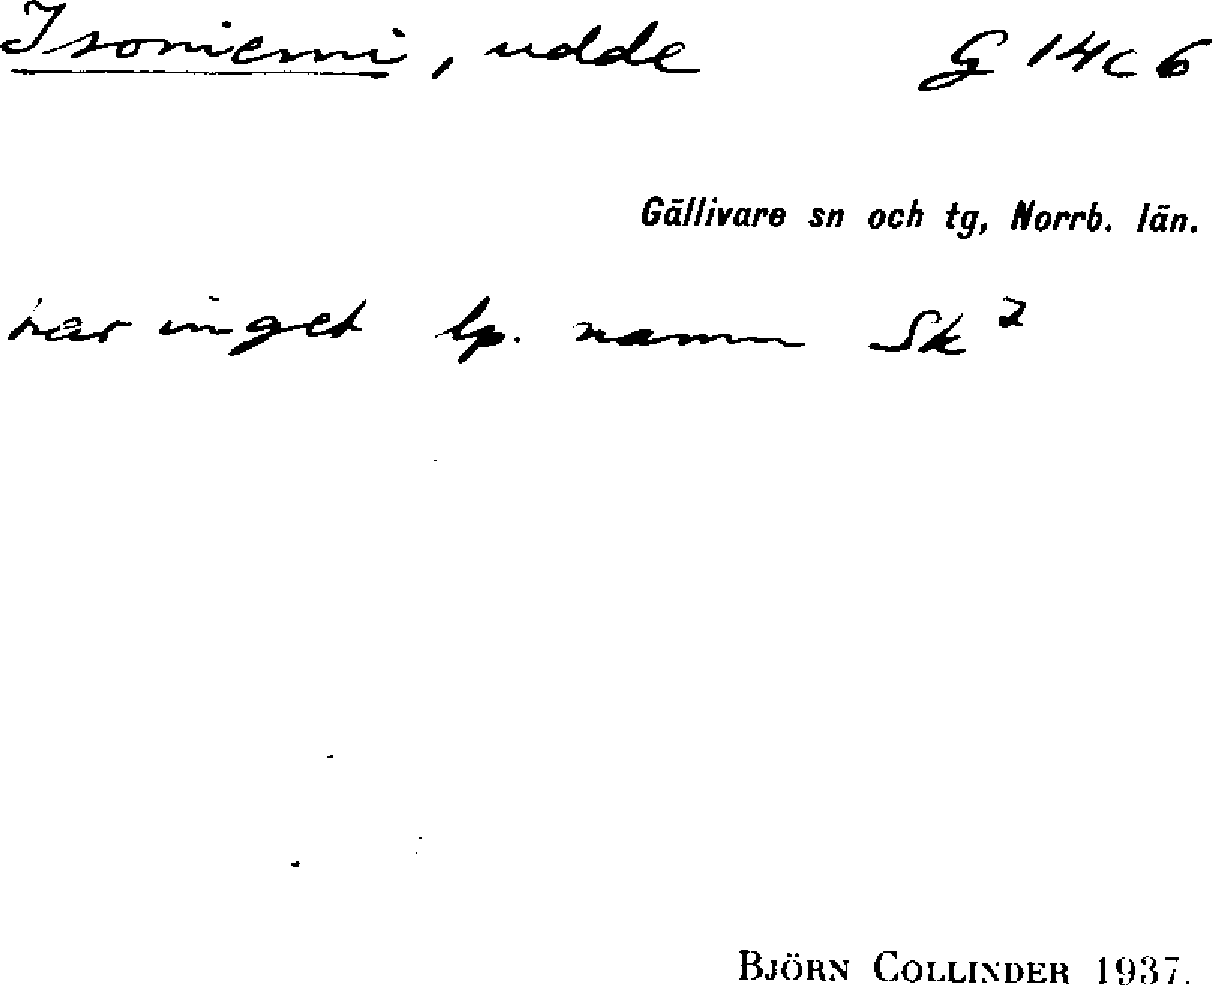 Isoniemi, udde G 14c6
Gällivare sn och tg, Norrb. län.
har inget lp. namn Sk²
BJÖRN COLLINDER 1937.